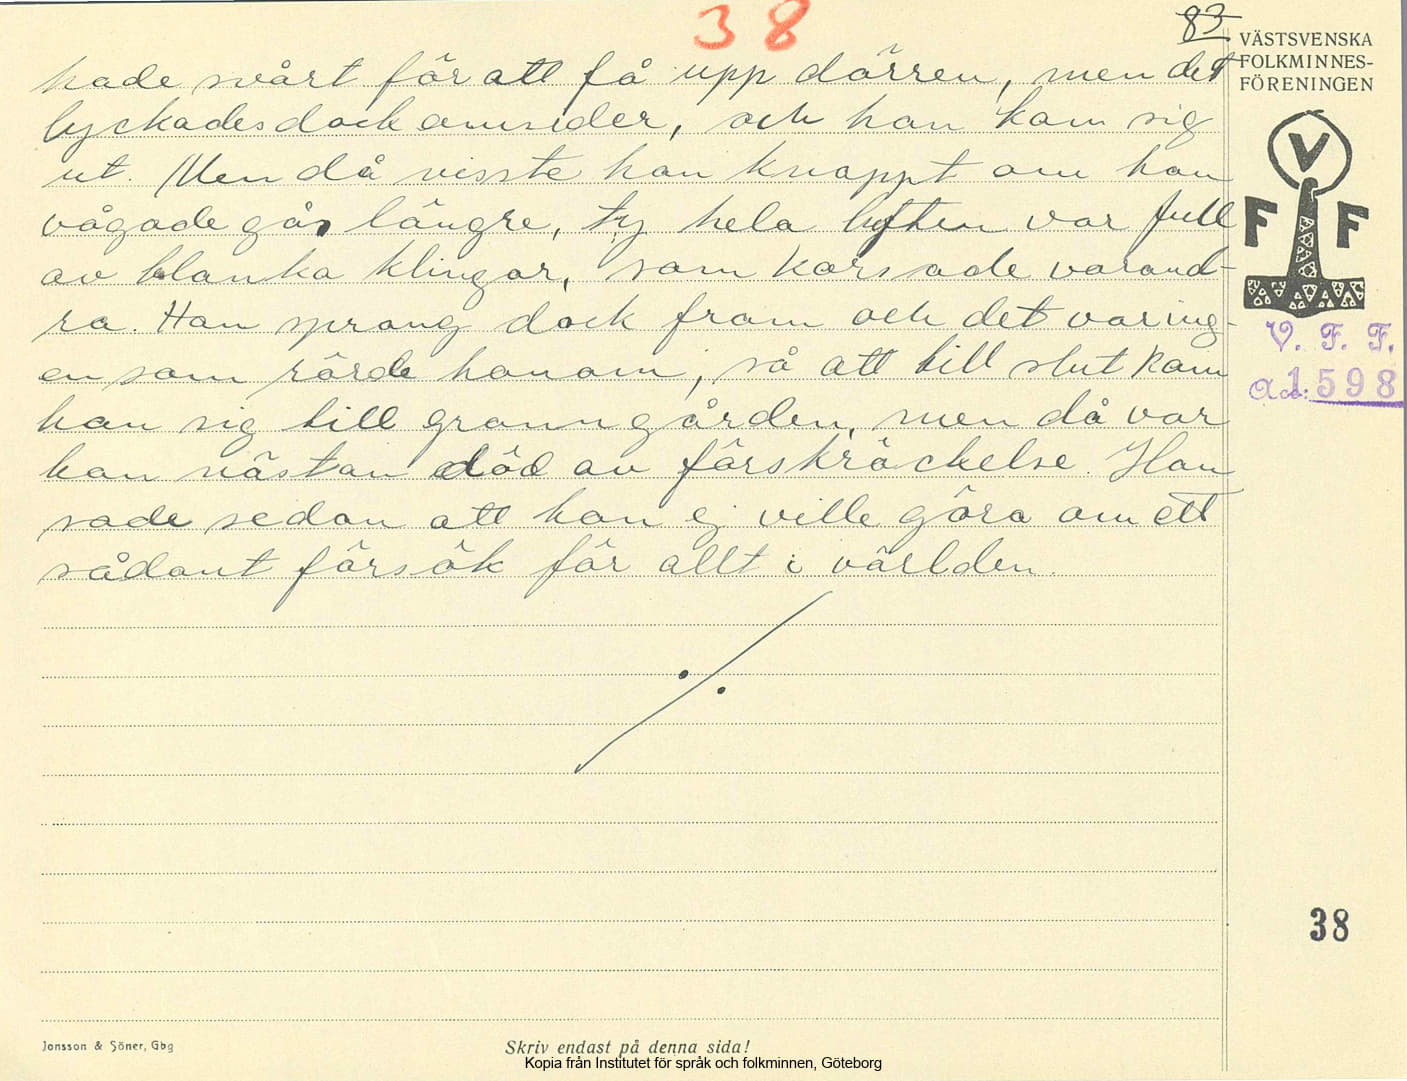 38
83
VÄSTSVENSKA
FOLKMINNES-
FÖRENINGEN
V
F F
V. F. F.
Acc: 1598
hade svårt för att få upp dörren, men det
lyckades dock omsider, och han kom sig
ut. Men då visste han knappt om han
vågade gå längre, ty hela luften var full
av blanka klingor, som korsade varand-
ra. Han sprang dock fram och det var ing-
en som rörde honom, så att till slut kom
han sig till granngården, men då var
han nästan död av förskräckelse. Han
sade sedan att han ej ville göra om ett
sådant försök för allt i världen.
38
Jonsson & Söner, Gbg
Skriv endast på denna sida!
Kopia från Institutet för språk och folkminnen, Göteborg